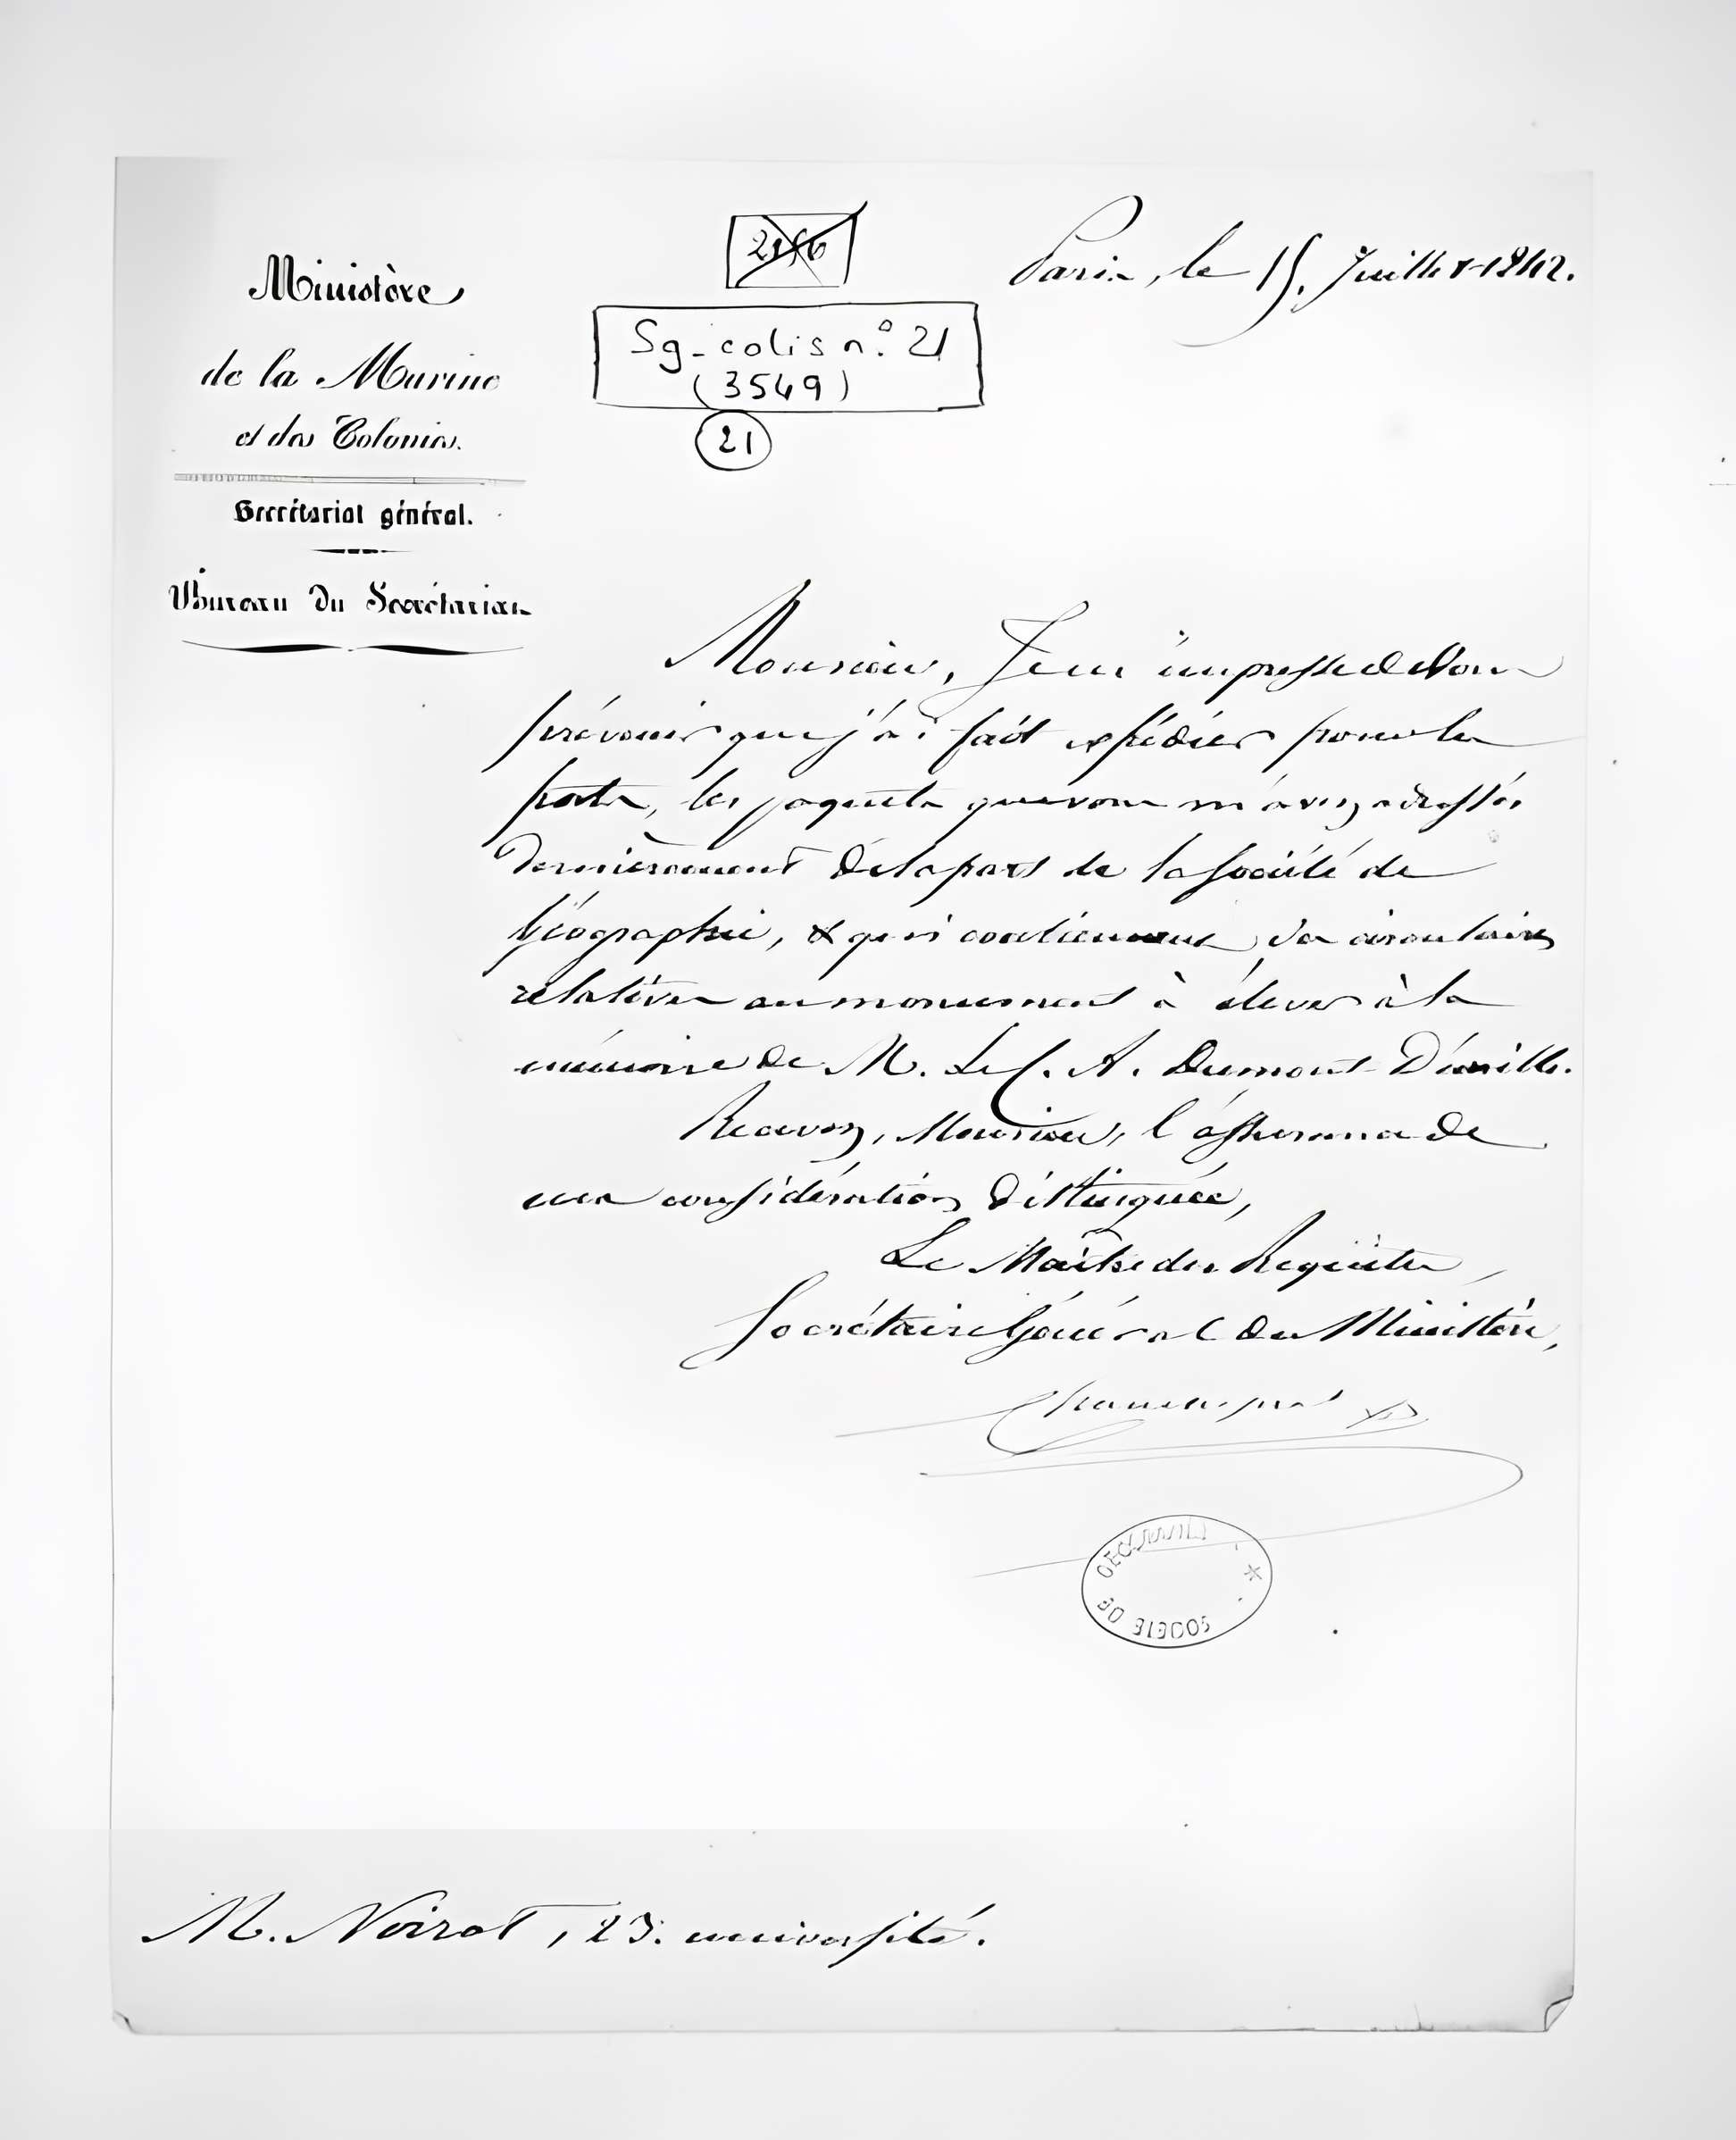 Ministère
de la Marine
et des Colonies.
Secrétariat général.
Bureau du Secrétariat
Sg-colis n.º 21
(3549)
21
Paris, le 15. Juillet 1842.
Monsieur, Je m'empresse de Vous
prévenir que j'ai fait expédier pour la
poste, les paquets que vous m'avez adressés
dernièrement de la part de la Société de
Géographie, & qui contiennent des circulaires
relatives au monument à élever à la
mémoire de M. Le C. A. Dumont D'urville.
Recevez, Monsieur, l'assurance de
ma considération distinguée,
Le Maître des Requêtes,
Secrétaire Général du Ministère,
SOCIETE DE
M. Noirot, 23. université.